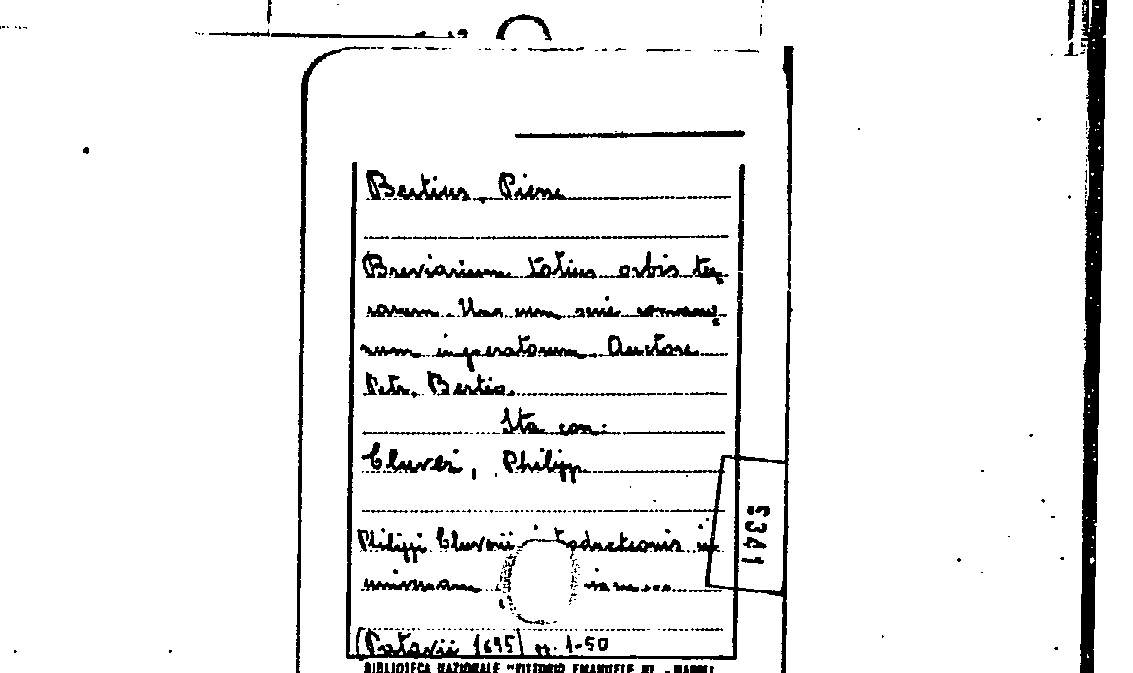 Bertius, Pierre
Breviarium totius orbis ter
rarum. Una cum serie romano
rum imperatorum. Auctore
Petr. Bertio.
Sta con:
Cluveri, Philipp
Philippi Cluverii introductionis in
universam
(Patavii 1695) pp. 1-50
BIBLIOTECA NAZIONALE "VITTORIO EMANUELE III" - NAPOLI
5341